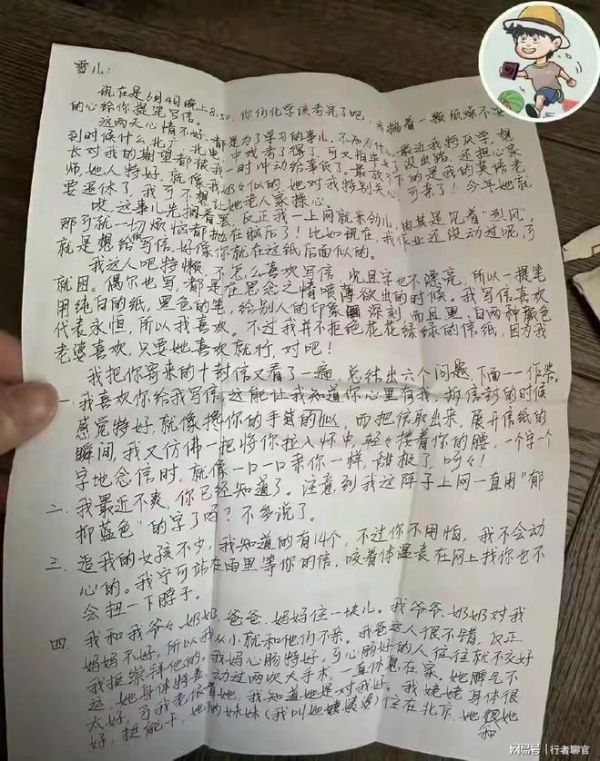 雪儿:
现在是6月4日晚上8:50,你们化学该考完了吧,我揣着一颗烦燥不安
的心给你提笔写信。
这两天心情不好,都是为了学习的事儿,不知为什么,最近我特厌学,想
到时候什么北广、北电、中戏考了得了,可又怕毕业了没出路,还担心家
长对我的期望都被我一时冲动给辜负了。最放不下的是我的英语老
师,她人特好,就像我奶奶似的,她对我特别关心,可来了!今年她就
要退休了,我可不想让她老人家操心。
哎,这事儿先搁着置,反正我一上网就来劲儿,尤其是见着"烈风",
那可就一切烦恼都抛在脑后了!比如现在,我作业还没动过呢,可
就是想给你写信,好像你就在这纸后面似的。
我这人吧特懒,不怎么喜欢写信,况且字也不漂亮,所以一提笔
就困。偶尔也写,都是在思念之情喷薄欲出的时候。我写信喜欢
用纯白的纸,黑色的笔,给别人的印象深刻,而且黑、白两种颜色
代表永恒,所以我喜欢。不过我并不拒绝花花绿绿的信纸,因为我
老婆喜欢,只要她喜欢就行,对吧!
我把你寄来的十封信又看了一遍,总结出六个问题,下面一一作答。
一、我喜欢你给我写信,这能让我知道你心里有我,拆信封的时候
感觉特好,就像搀你的手似的,而把信取出来,展开信纸的
瞬间,我又仿佛一把将你拉入怀中,轻轻搂着你的腰,一个字一个
字地念信时,就像一口一口亲你一样,甜极了,呵呵!
二、我最近不爽,你已经知道了。注意到我这阵子上网一直用"郁
抑蓝色"的字了吗?不多说了。
三、追我的女孩不少,我知道的有14个,不过你不用怕,我不会动
心的。我宁可站在雨里等你的信,咬着体温表在网上找你也不
会扭一下脖子。
四、我和我爷爷、奶奶、爸爸、妈妈住一块儿。我爷爷、奶奶对我
妈妈不好,所以我从小就和他们不亲。我爸这人很不错,反正
我挺崇拜他的。我妈心肠特好,可心肠好的人往往就不交好
运,她身体特差,动过两次大手术,一直休息在家。她脾气不
太好,可我老依着她,我知道她是对我好。我姥姥身体很
好,挺能干,她的妹妹(我叫她姨姥姥)住在北京,她跟她
和
网易号 | 行者聊官